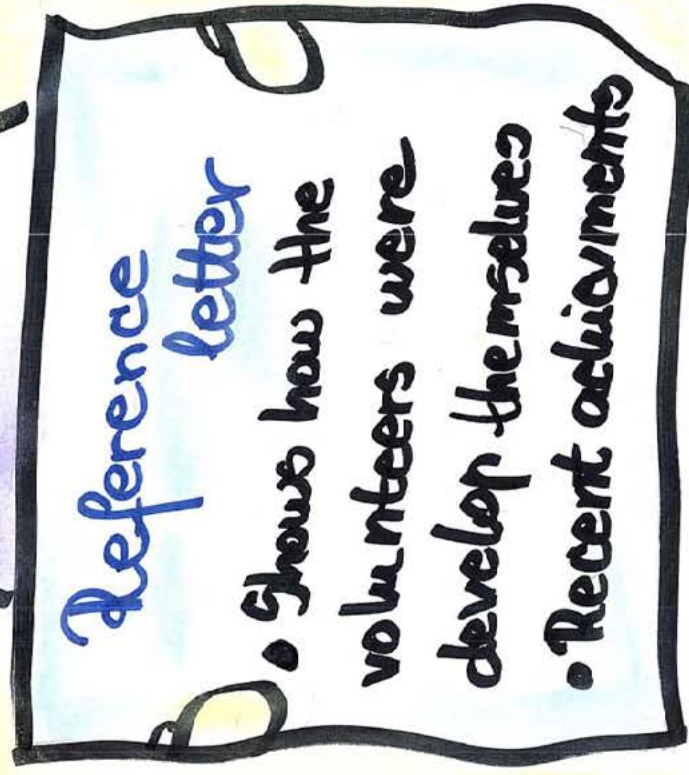 Reference
letter
• Shows how the
volunteers were
develop themselves
• Recent achivments